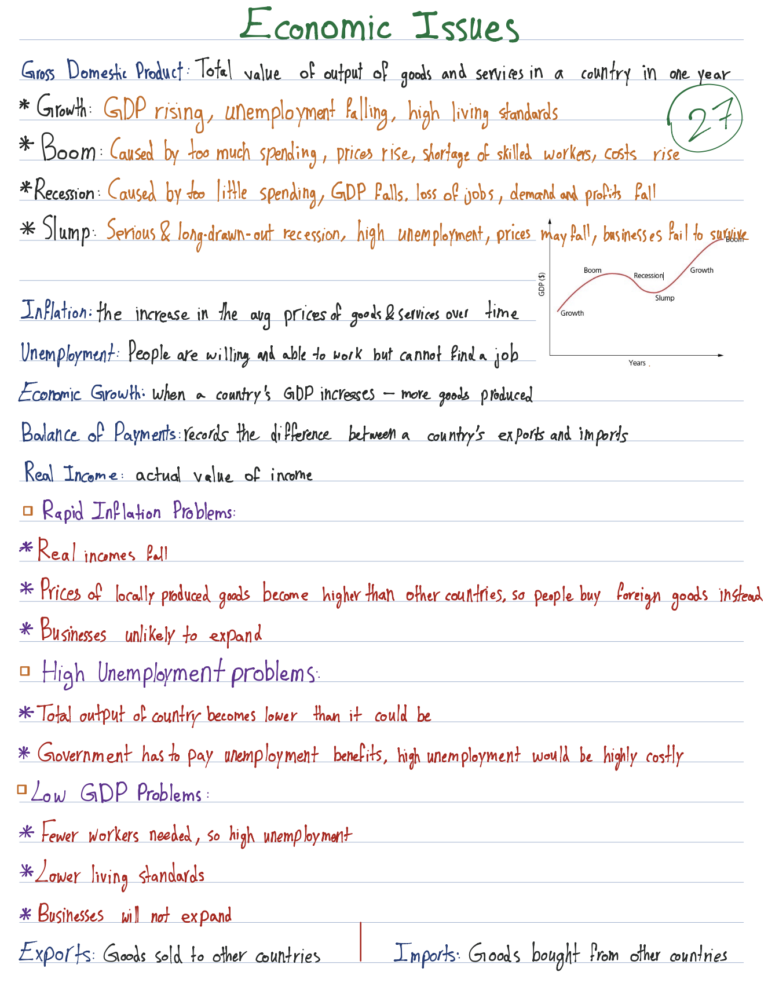 Economic Issues
Gross Domestic Product: Total value of output of goods and services in a country in one year
* Growth: GDP rising, unemployment falling, high living standards
27
* Boom: Caused by too much spending, prices rise, shortage of skilled workers, costs rise
* Recession: Caused by too little spending, GDP falls, loss of jobs, demand and profits fall
* Slump: Serious & long-drawn-out recession, high unemployment, prices may fall, businesses fail to survive
Boom
Boom
Recession
Growth
GDP ($)
Slump
Growth
Years
Inflation: the increase in the avg prices of goods & services over time
Unemployment: People are willing and able to work but cannot find a job
Economic Growth: when a country's GDP increases – more goods produced
Balance of Payments: records the difference between a country's exports and imports
Real Income: actual value of income
Rapid Inflation Problems:
* Real incomes fall
* Prices of locally produced goods become higher than other countries, so people buy foreign goods instead
* Businesses unlikely to expand
High Unemployment problems:
* Total output of country becomes lower than it could be
* Government has to pay unemployment benefits, high unemployment would be highly costly
Low GDP Problems:
* Fewer workers needed, so high unemployment
* Lower living standards
* Businesses will not expand
Exports: Goods sold to other countries
Imports: Goods bought from other countries